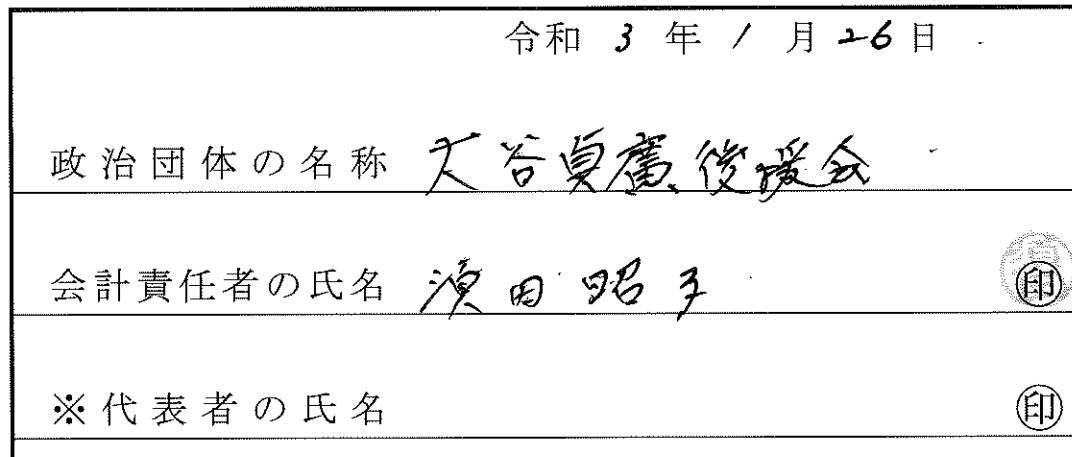 令和 3 年 1 月 26 日
政治団体の名称 大谷貞廣後援会
会計責任者の氏名 濱田昭子 印
※代表者の氏名 印